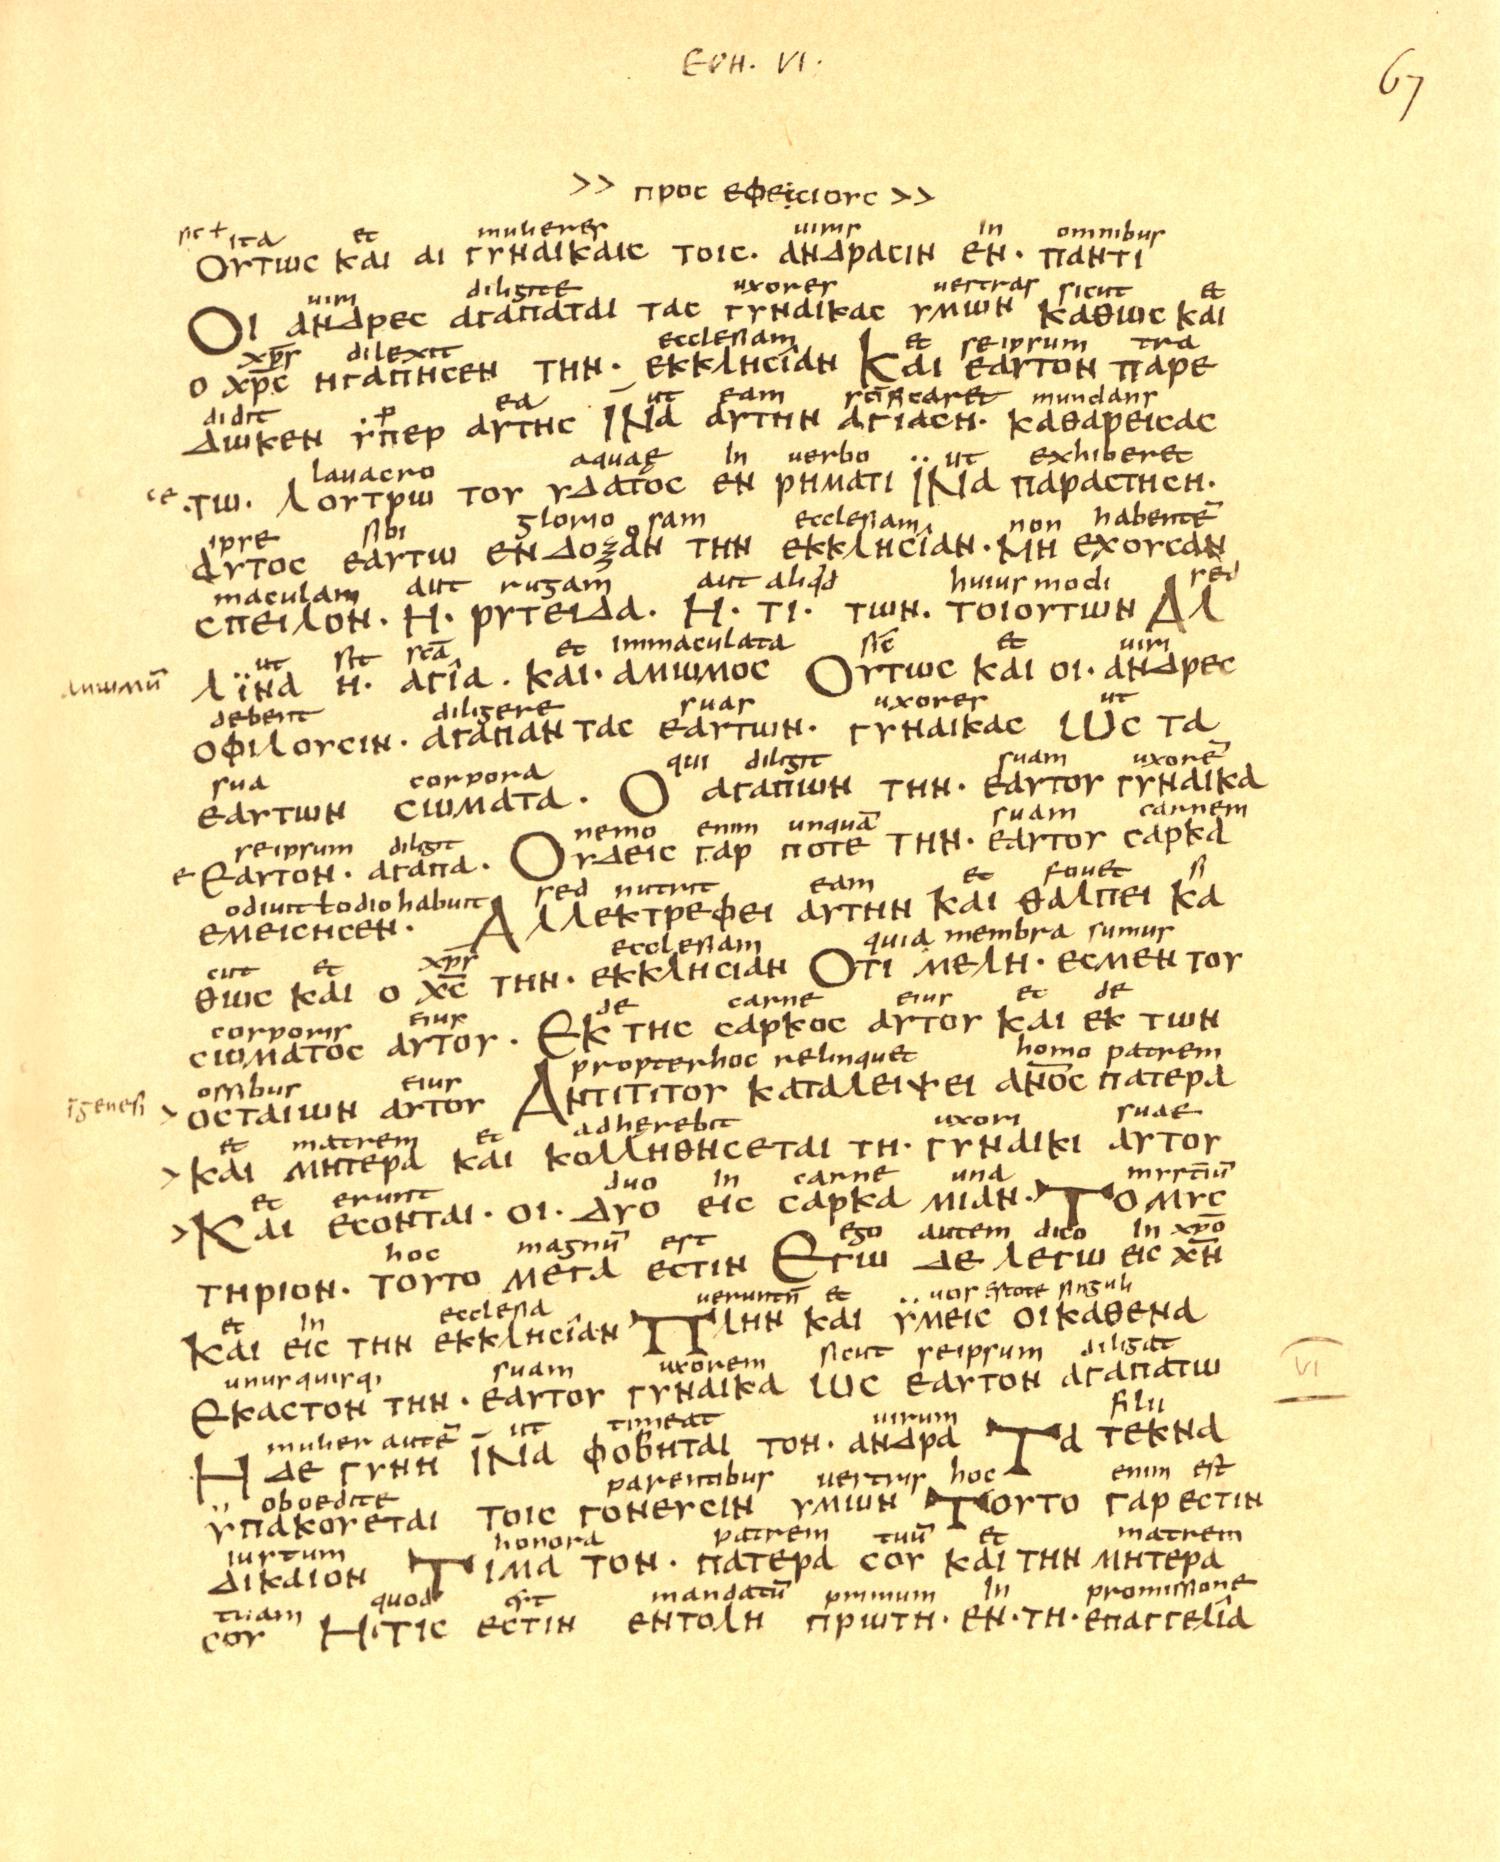 EPH. VI.
67
>> προς εφεισιους >>
ita et mulieres uiris in omnibus
Ουτως και αι γυναικαις τοις· ανδρασιν εν· παντι
uiri diligite uxores uestras sicut et
Οι ανδρες αγαπαται τας γυναικας υμων καθως και
xp̅s dilexit ecclesiam et seipsum tra
ο χρ̅ς ηγαπησεν την· εκκλησιαν Και εαυτον παρε
didit p ea ut eam sc̅ificaret mundans
δωκεν υπερ αυτης Ινα αυτην αγιαση· καθαρεισας
lauacro aquae in uerbo ut exhiberet
ce ·τω· λουτρω του υδατος εν ρηματι Ινα παραστηση·
ipse sibi gloriosam ecclesiam non habente̅
αυτος εαυτω ενδοξαν την εκκλησιαν· Μη εχουσαν
maculam aut rugam aut aliqd huiusmodi sed
σπειλον· Η· ρυτειδα· Η· τι· των· τοιουτων Αλ
ut sit sc̅a et immaculata sic̅ et uiri
λϊνα η· αγια· και· αμωμος Ουτως και οι· ανδρες
αμωμο̅
debent diligere suas uxores ut
οφιλουσιν· αγαπαν τας εαυτων· γυναικας Ως τα
sua corpora qui diligit suam uxore̅
εαυτων σωματα· Ο αγαπων την· εαυτου γυναικα
seipsum diligit nemo enim unqua̅ suam carnem
Εαυτον· αγαπα· Ουδεις γαρ ποτε την· εαυτου σαρκα
odiuit ł odio habuit sed nutrit eam et fouet si
εμεισησεν· Αλλεκτρεφει αυτην και θαλπει κα
cut et xp̅s ecclesiam quia membra sumus
θως και ο χ̅ς την· εκκλησιαν Οτι μελη· εσμεν του
corporis eius de carne eius et de
σωματος αυτου· Εκ της σαρκος αυτου και εκ των
ossibus eius propterhoc relinquet homo patrem
οσταιων αυτου Αντιτιτου καταλειψει ανο̅ς πατερα
i̅ genesi >
et matrem et adherebit uxori suae
> και μητερα και κολληθησεται τη· γυναικι αυτου
et erunt duo in carne una mysteriu̅
> Και εσονται· οι· δυο εις σαρκα μιαν· Το μυς
hoc magnu̅ est ego autem dico in xp̅o
τηριον· τουτο μεγα εστιν Εγω δε λεγω εις χ̅ν
et in ecclesia uerunt̅n et uos estote singuli
και εις την εκκλησιαν Πλην και υμεις οι καθενα
unusquisq; suam uxorem sicut seipsum diligat
Εκαστον την· εαυτου γυναικα Ως εαυτον αγαπατω
VI
mulier aute̅ ut timeat uirum filii
Η δε γυνη Ινα φοβηται τον· ανδρα Τα τεκνα
oboedite parentibus uestris hoc enim est
υπακουεται τοις γονευσιν υμων Τουτο γαρ εστιν
iustum honora patrem tuu̅ et matrem
δικαιον Τιμα τον· πατερα σου και την μητερα
tuam quod est mandatu̅ primum in promissione
σου Η·τις εστιν εντολη πρωτη· εν·τη· επαγγελια